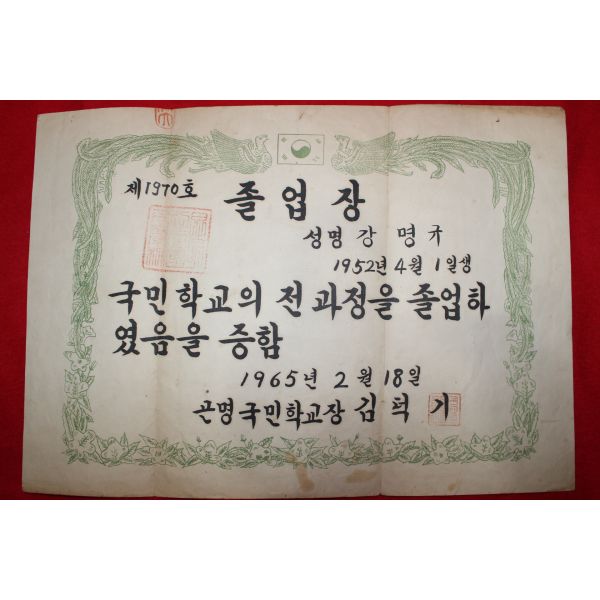 제1970호
졸업장
성명 강명규
1952년 4월 1일생
국민학교의 전 과정을 졸업하
였음을 증함
1965년 2월 18일
곤명국민학교장 김적기